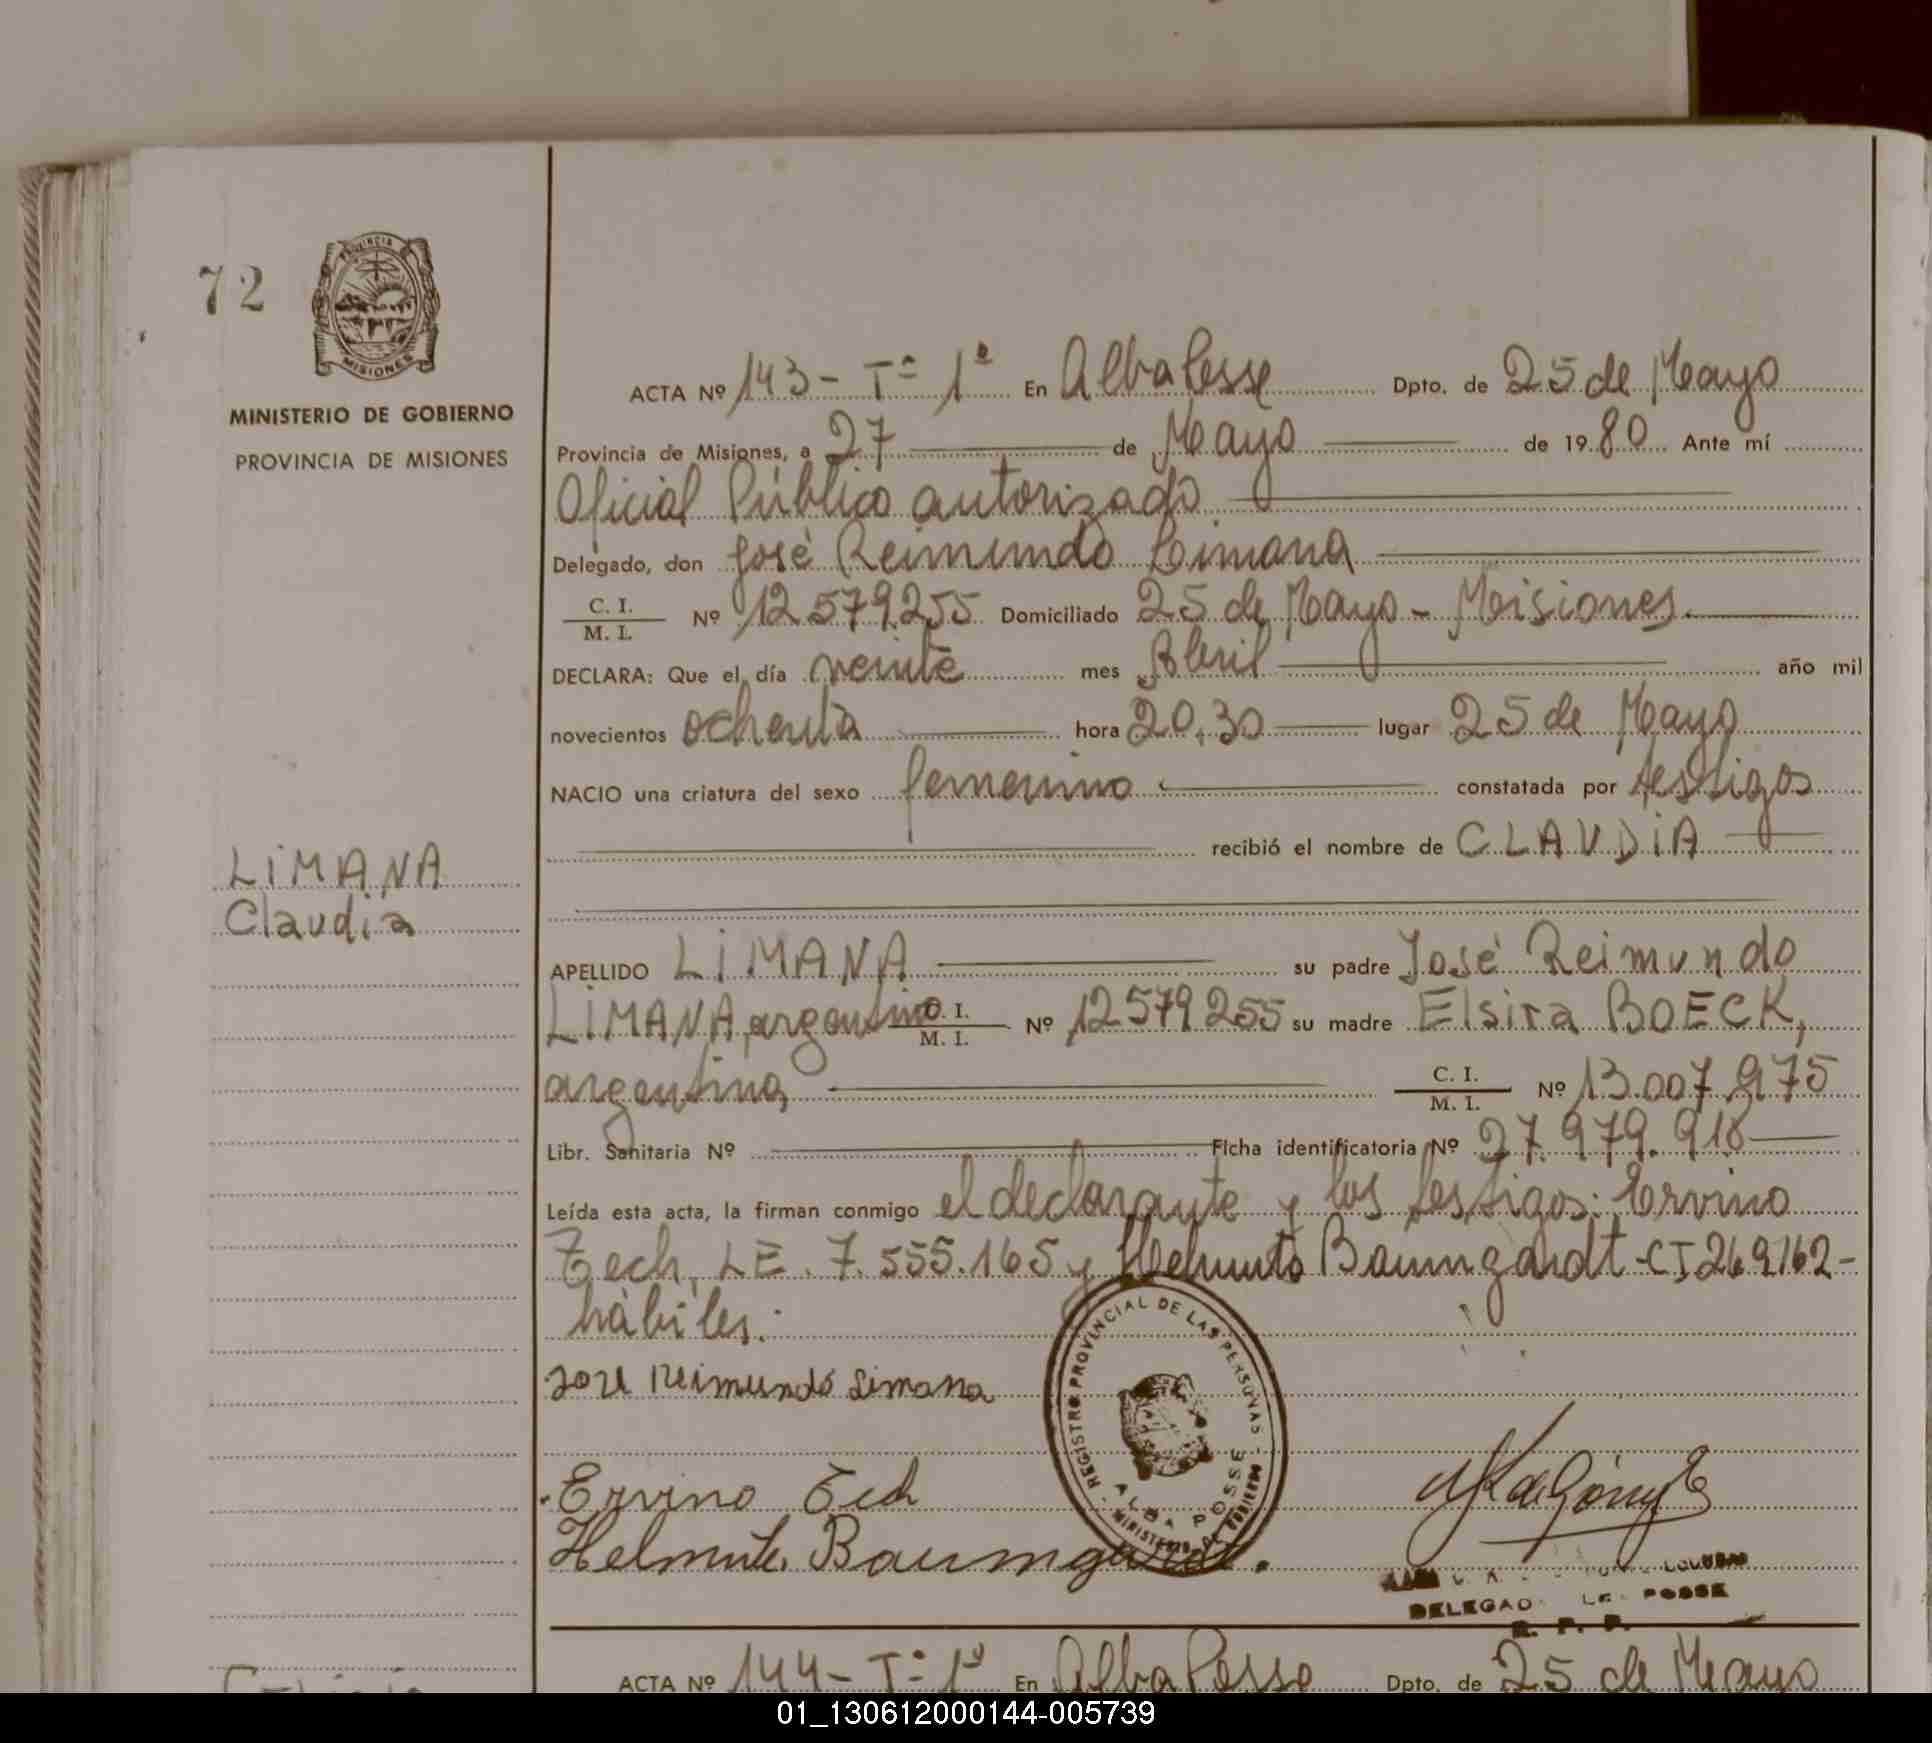 72
PROVINCIA
MISIONES
MINISTERIO DE GOBIERNO
PROVINCIA DE MISIONES
LiMANA
Claudia
ACTA Nº 143 - Tº 1º En Alba Posse Dpto. de 25 de Mayo
Provincia de Misiones, a 27 de Mayo de 1980 Ante mí
Oficial Público autorizado
Delegado, don José Reimundo Limana
C. I. / M. I. Nº 12579255 Domiciliado 25 de Mayo - Misiones
DECLARA: Que el día veinte mes Abril año mil
novecientos ochenta hora 20,30 lugar 25 de Mayo
NACIO una criatura del sexo femenino constatada por testigos
recibió el nombre de CLAUDiA
APELLIDO LiMANA su padre José Reimundo
LiMANA, argentino C. I. / M. I. Nº 12579255 su madre Elsira BOECK,
argentina C. I. / M. I. Nº 13.007.975
Libr. Sanitaria Nº Ficha identificatoria Nº 27.979.918
Leída esta acta, la firman conmigo el declarante y los testigos: Ervino
Zech, LE. 7.555.165 y Helmuto Baumgardt - CI 269162 -
hábiles.
Jose Reimundo Limana
REGISTRO PROVINCIAL DE LAS PERSONAS - MINISTERIO DE GOBIERNO -
ALBA POSSE
Ervino Zech
Helmuto Baumgardt.
DELEGAD POSSE
R. P. P.
ACTA Nº 144 - Tº 1º En Alba Posse Dpto. de 25 de Mayo
01_130612000144-005739